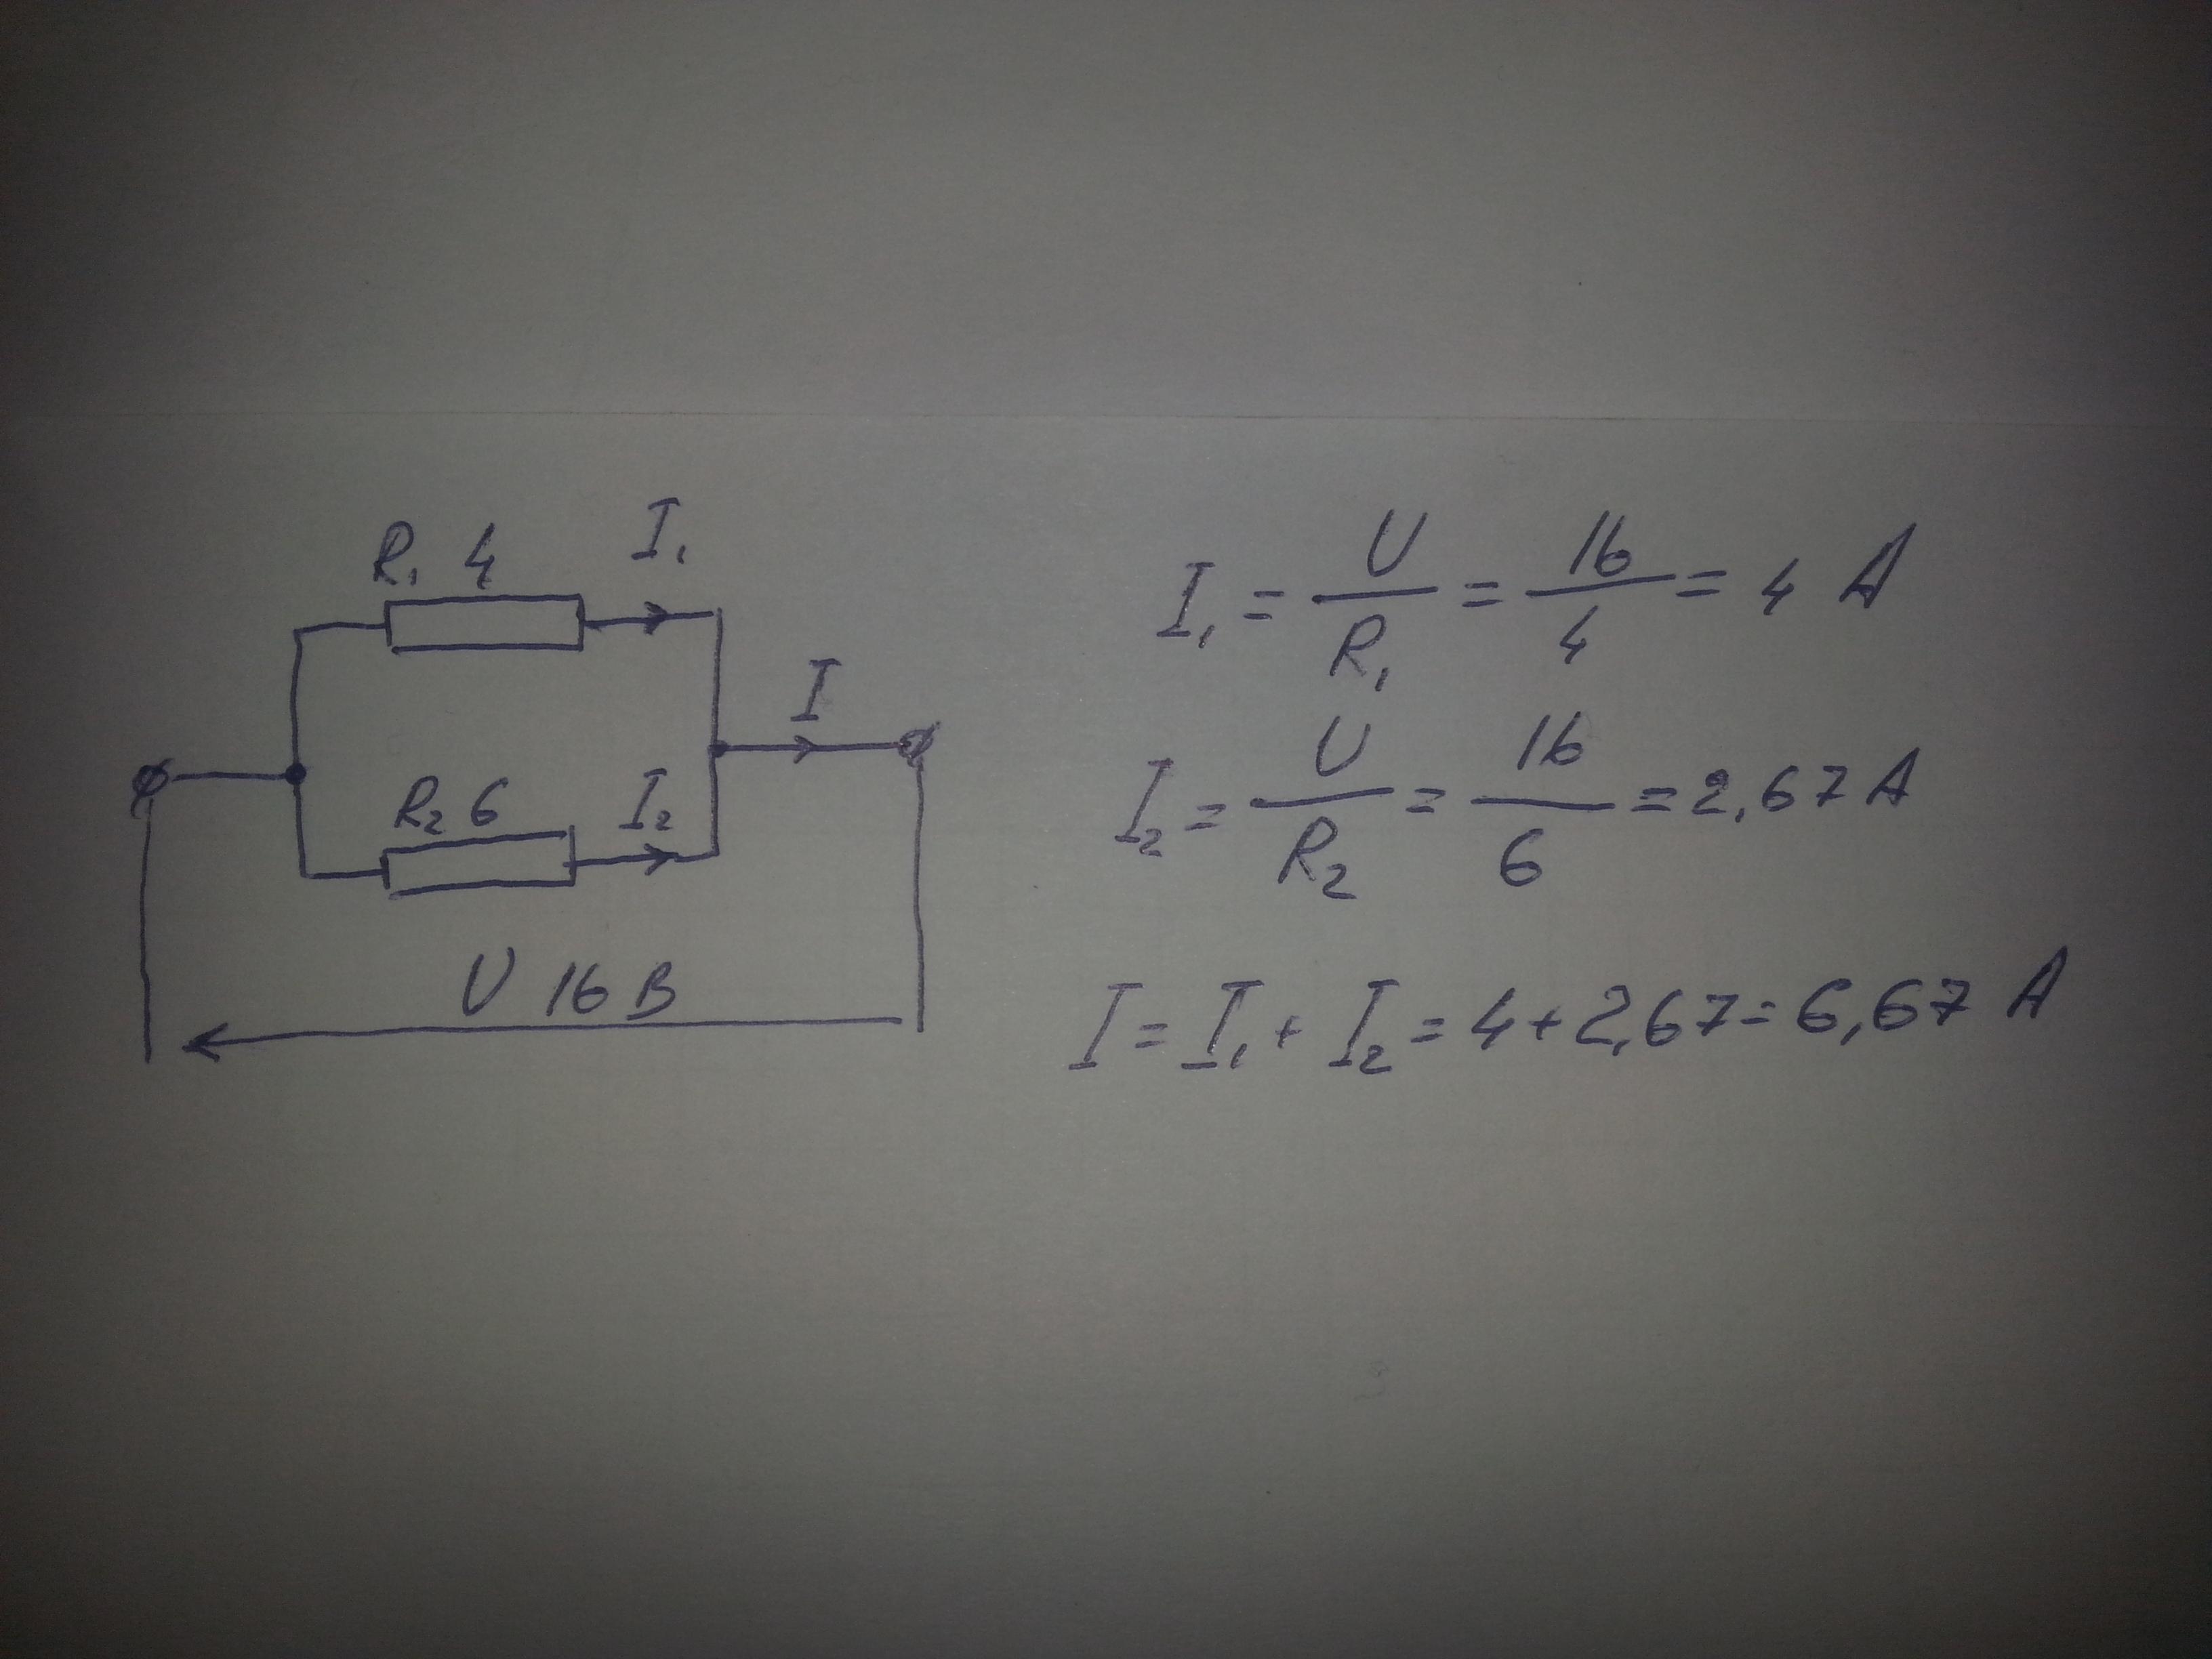 R₁ 4
I₁
I
R₂ 6
I₂
U 16 В
I₁ = U/R₁ = 16/4 = 4 А
I₂ = U/R₂ = 16/6 = 2,67 А
I = I₁ + I₂ = 4+2,67 = 6,67 А